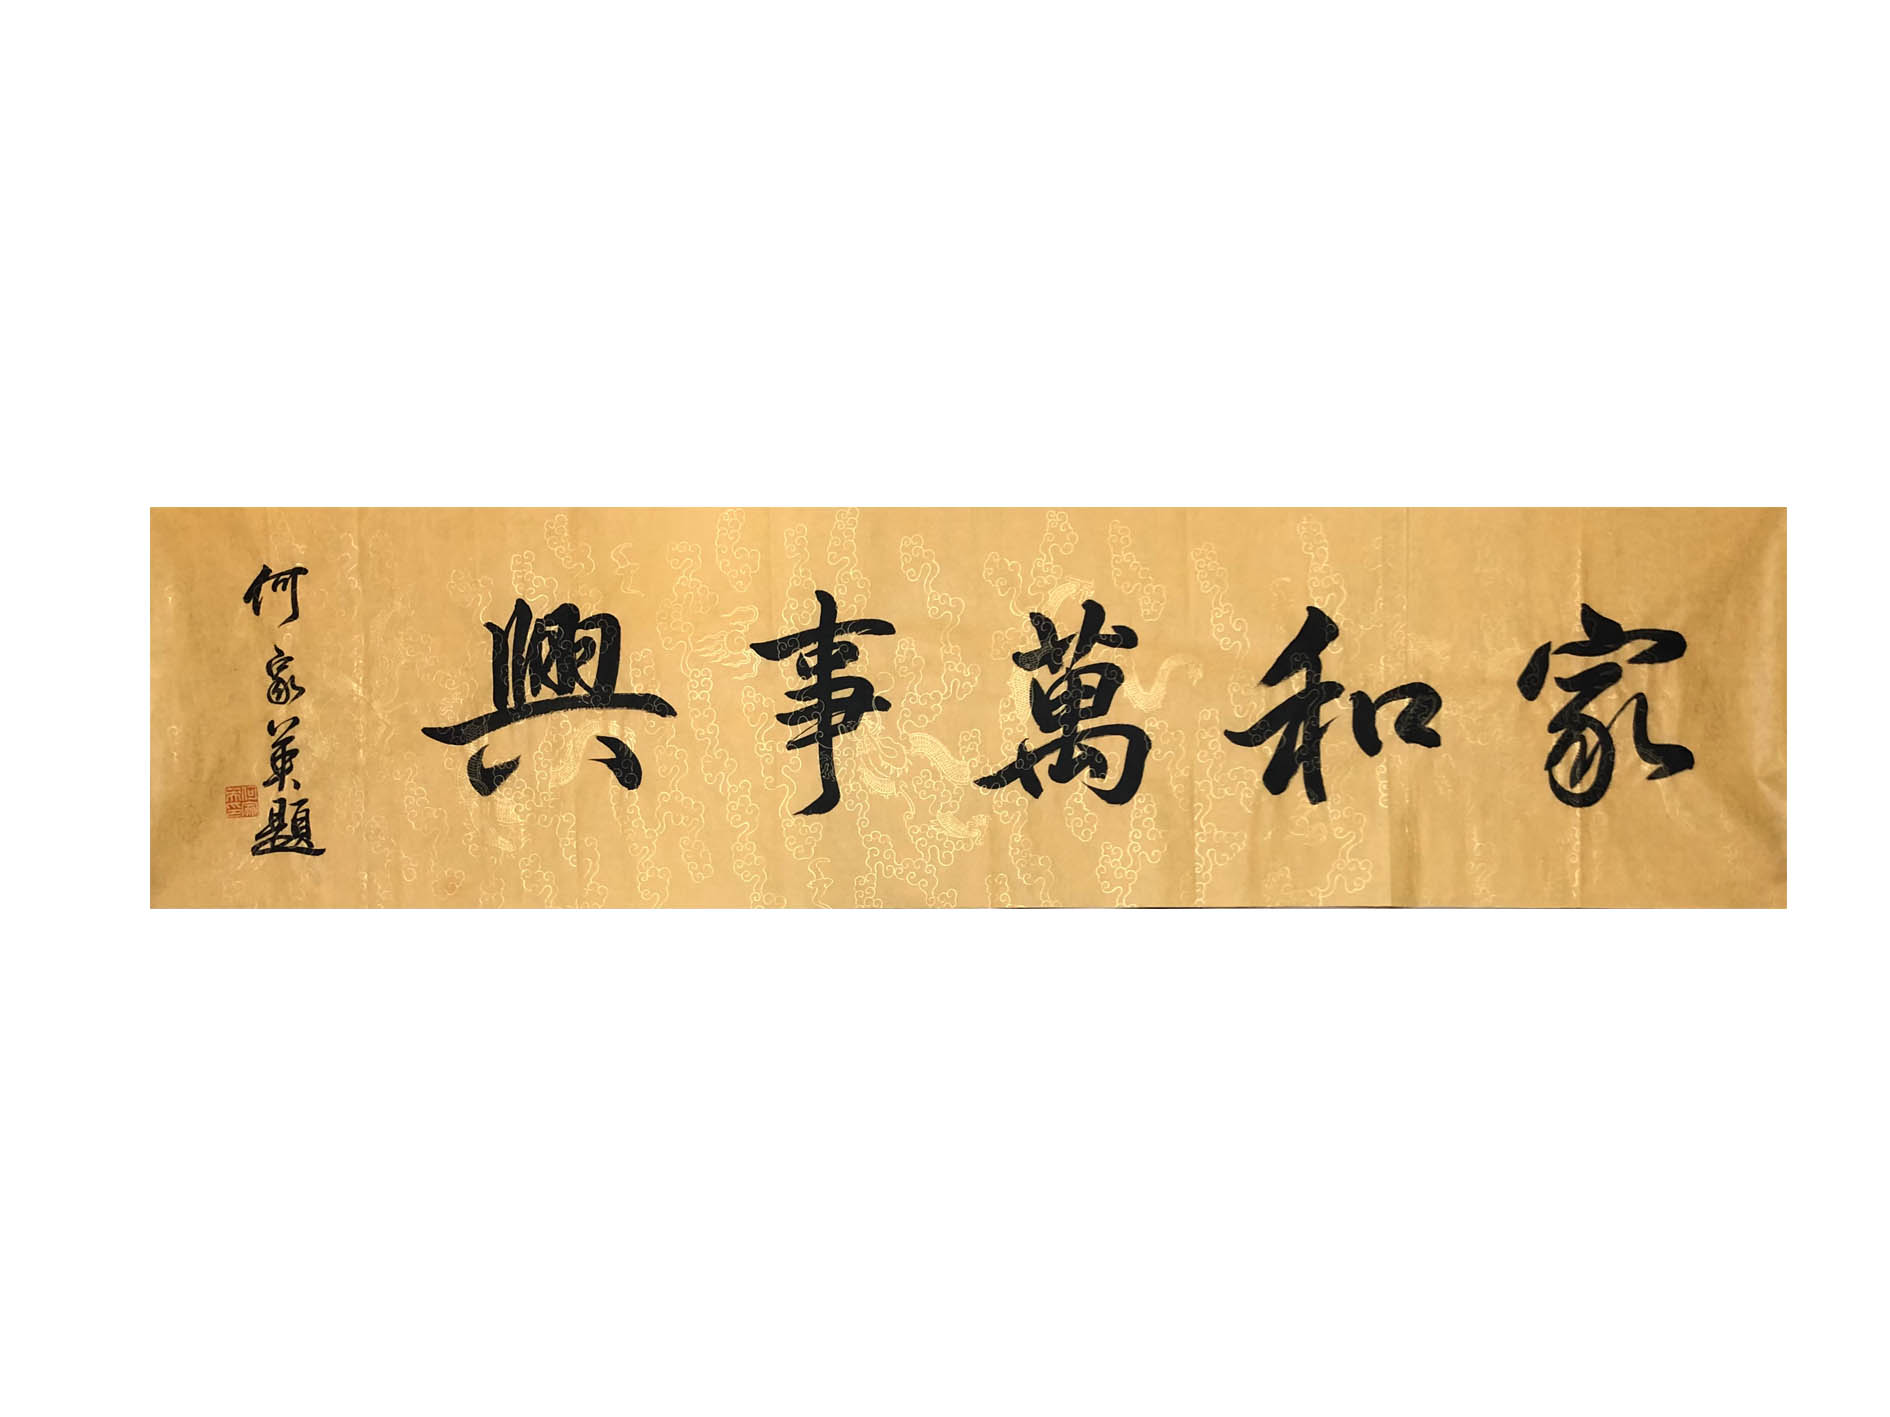 家和萬事興
何家英題